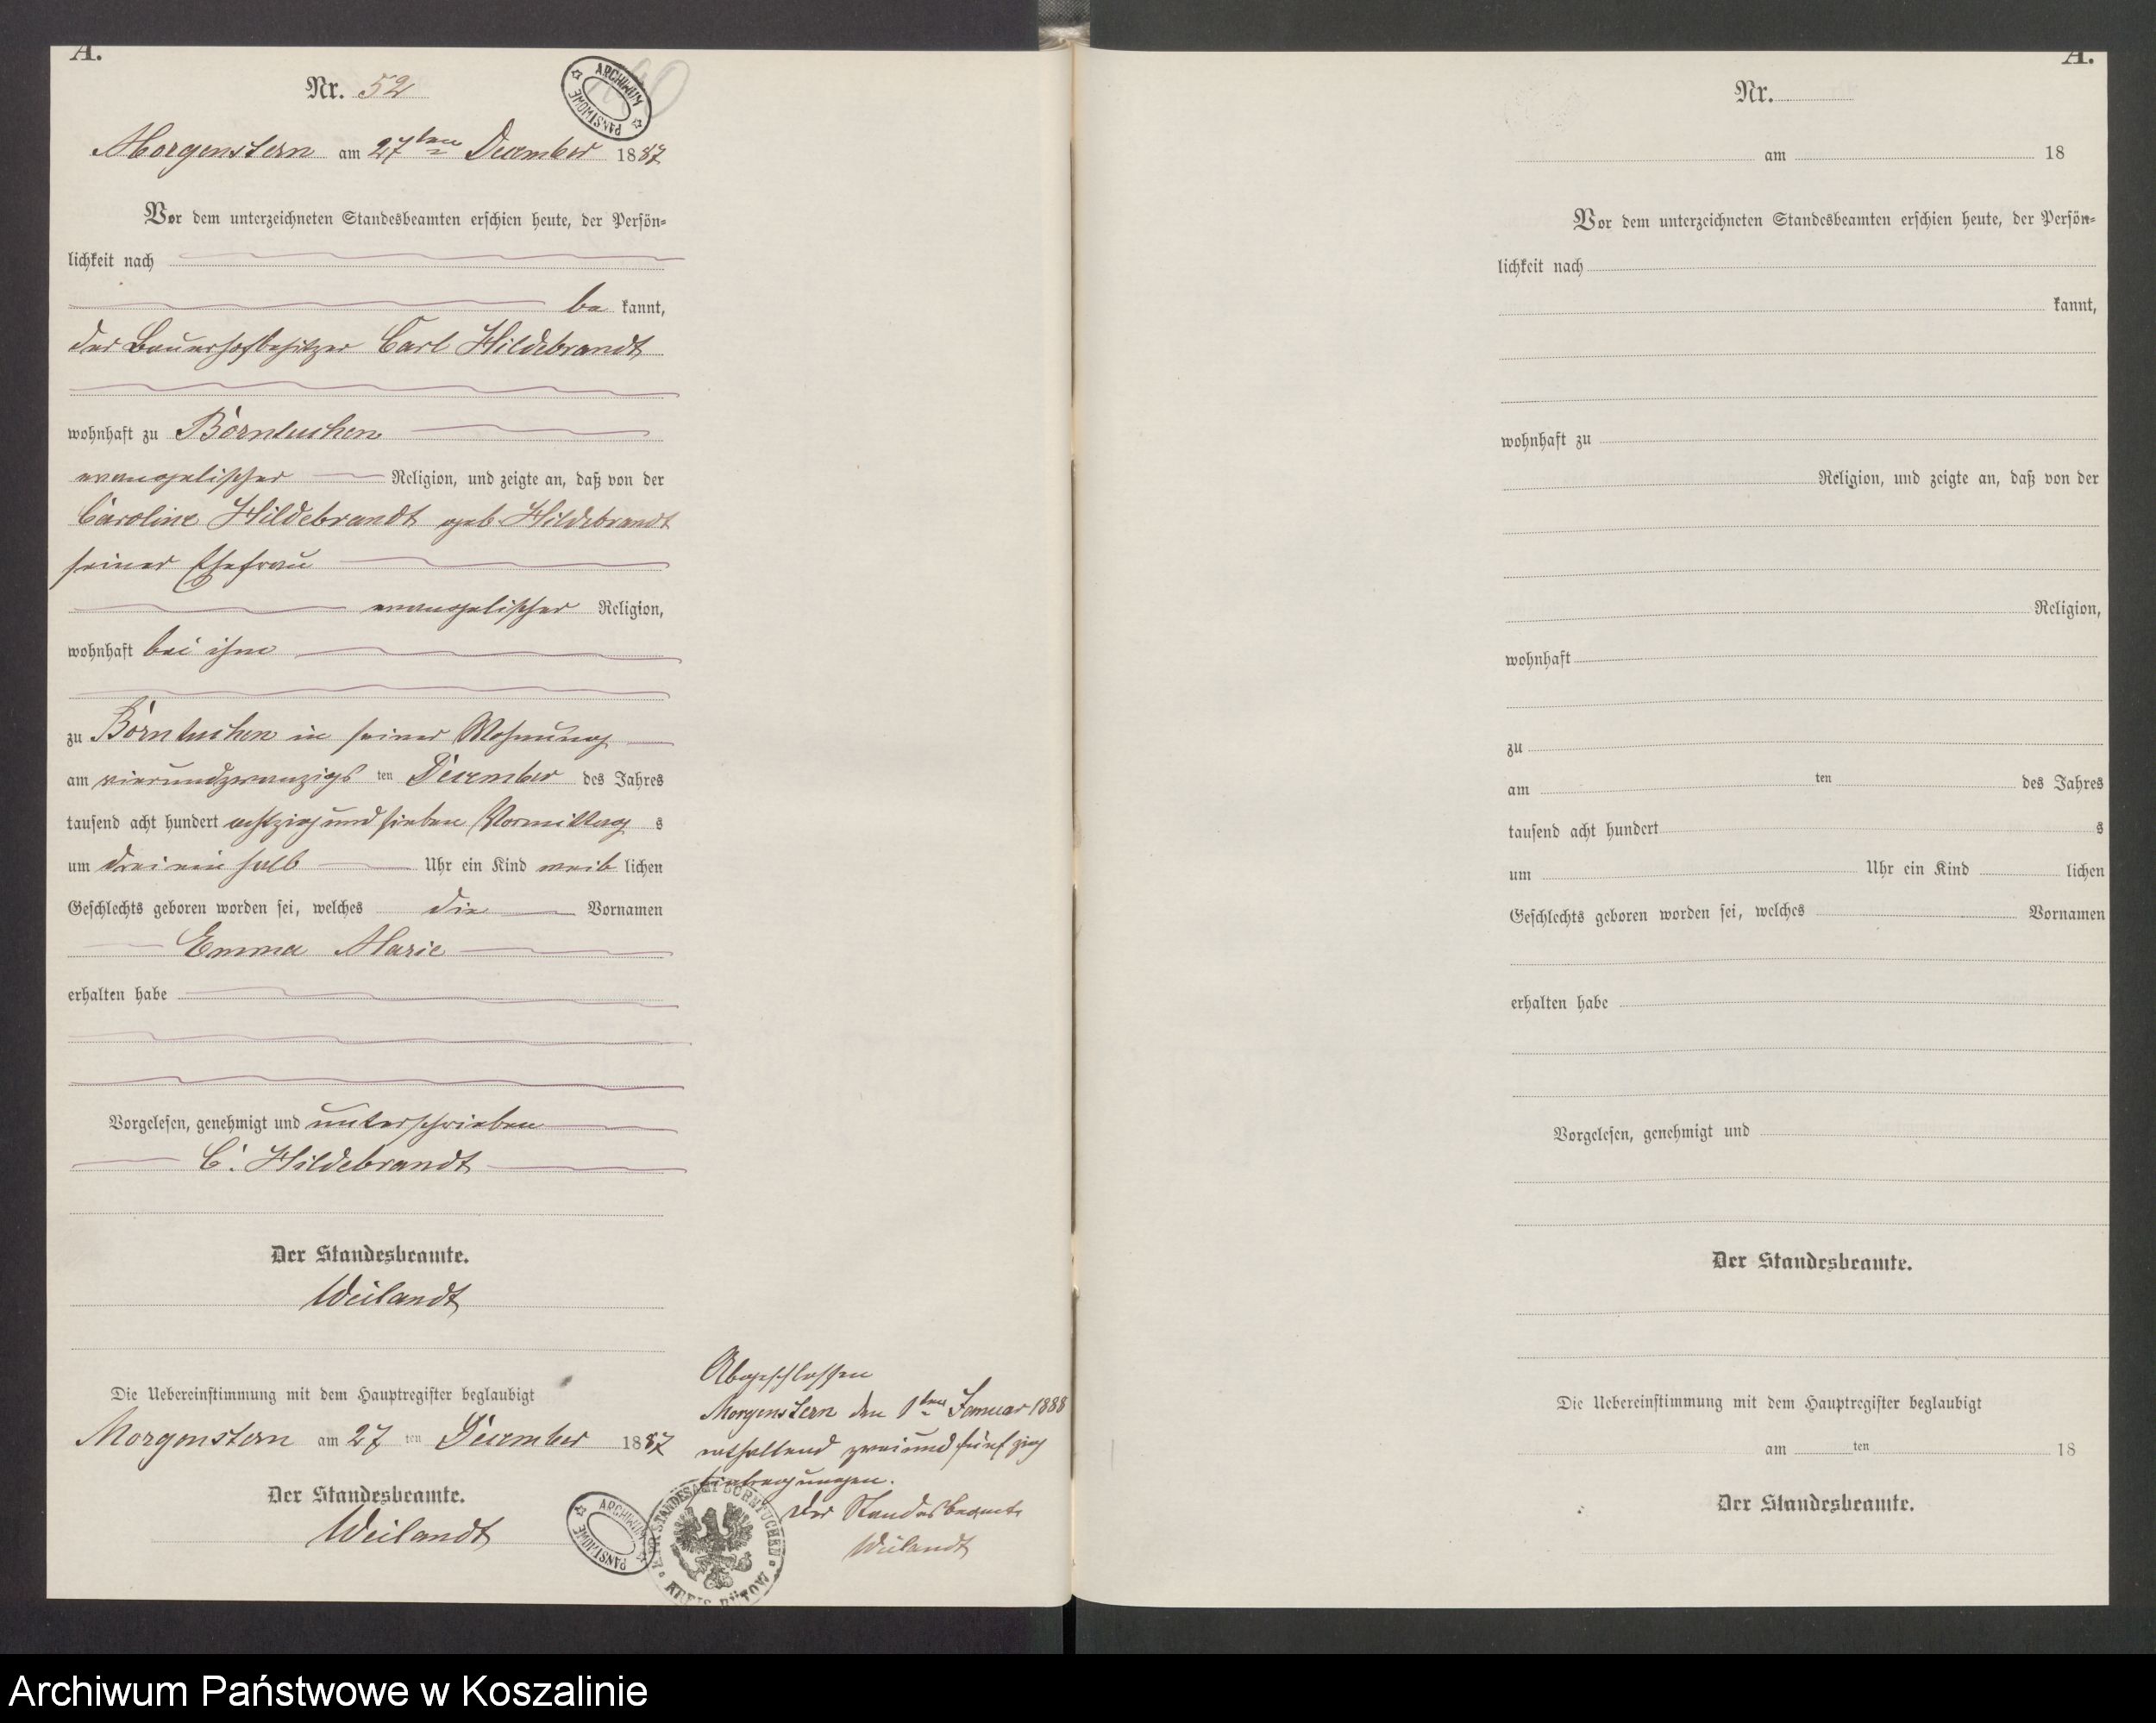 A.
Nr. 52
ARCHIWUM PAŃSTWOWE
Morgenstern am 27ten December 1887
Vor dem unterzeichneten Standesbeamten erschien heute, der Persön-
lichkeit nach
be kannt,
der Bauerhofbesitzer Carl Hildebrandt
wohnhaft zu Börntuchen
evangelischer Religion, und zeigte an, daß von der
Caroline Hildebrandt geb. Hildebrandt
seiner Ehefrau
evangelischer Religion,
wohnhaft bei ihm
zu Börntuchen in seiner Wohnung
am vierundzwanzigs ten December des Jahres
tausend acht hundert achtzig und sieben Vormittag s
um drei ein halb Uhr ein Kind weib lichen
Geschlechts geboren worden sei, welches die Vornamen
Emma Marie
erhalten habe
Vorgelesen, genehmigt und unterschrieben
C. Hildebrandt
Der Standesbeamte.
Weilandt
Die Uebereinstimmung mit dem Hauptregister beglaubigt
Morgenstern am 27 ten December 1887
Der Standesbeamte.
Weilandt
ARCHIWUM PAŃSTWOWE
Abgeschlossen
Morgenstern den 1ten Januar 1888
enthaltend zweiundfünfzig
Eintragungen.
Der Standesbeamte
Weilandt
STANDESAMT BÖRNTUCHEN
KREIS BÜTOW
A.
Nr.
am 18
Vor dem unterzeichneten Standesbeamten erschien heute, der Persön-
lichkeit nach
kannt,
wohnhaft zu
Religion, und zeigte an, daß von der
Religion,
wohnhaft
zu
am ten des Jahres
tausend acht hundert s
um Uhr ein Kind lichen
Geschlechts geboren worden sei, welches Vornamen
erhalten habe
Vorgelesen, genehmigt und
Der Standesbeamte.
Die Uebereinstimmung mit dem Hauptregister beglaubigt
am ten 18
Der Standesbeamte.
Archiwum Państwowe w Koszalinie